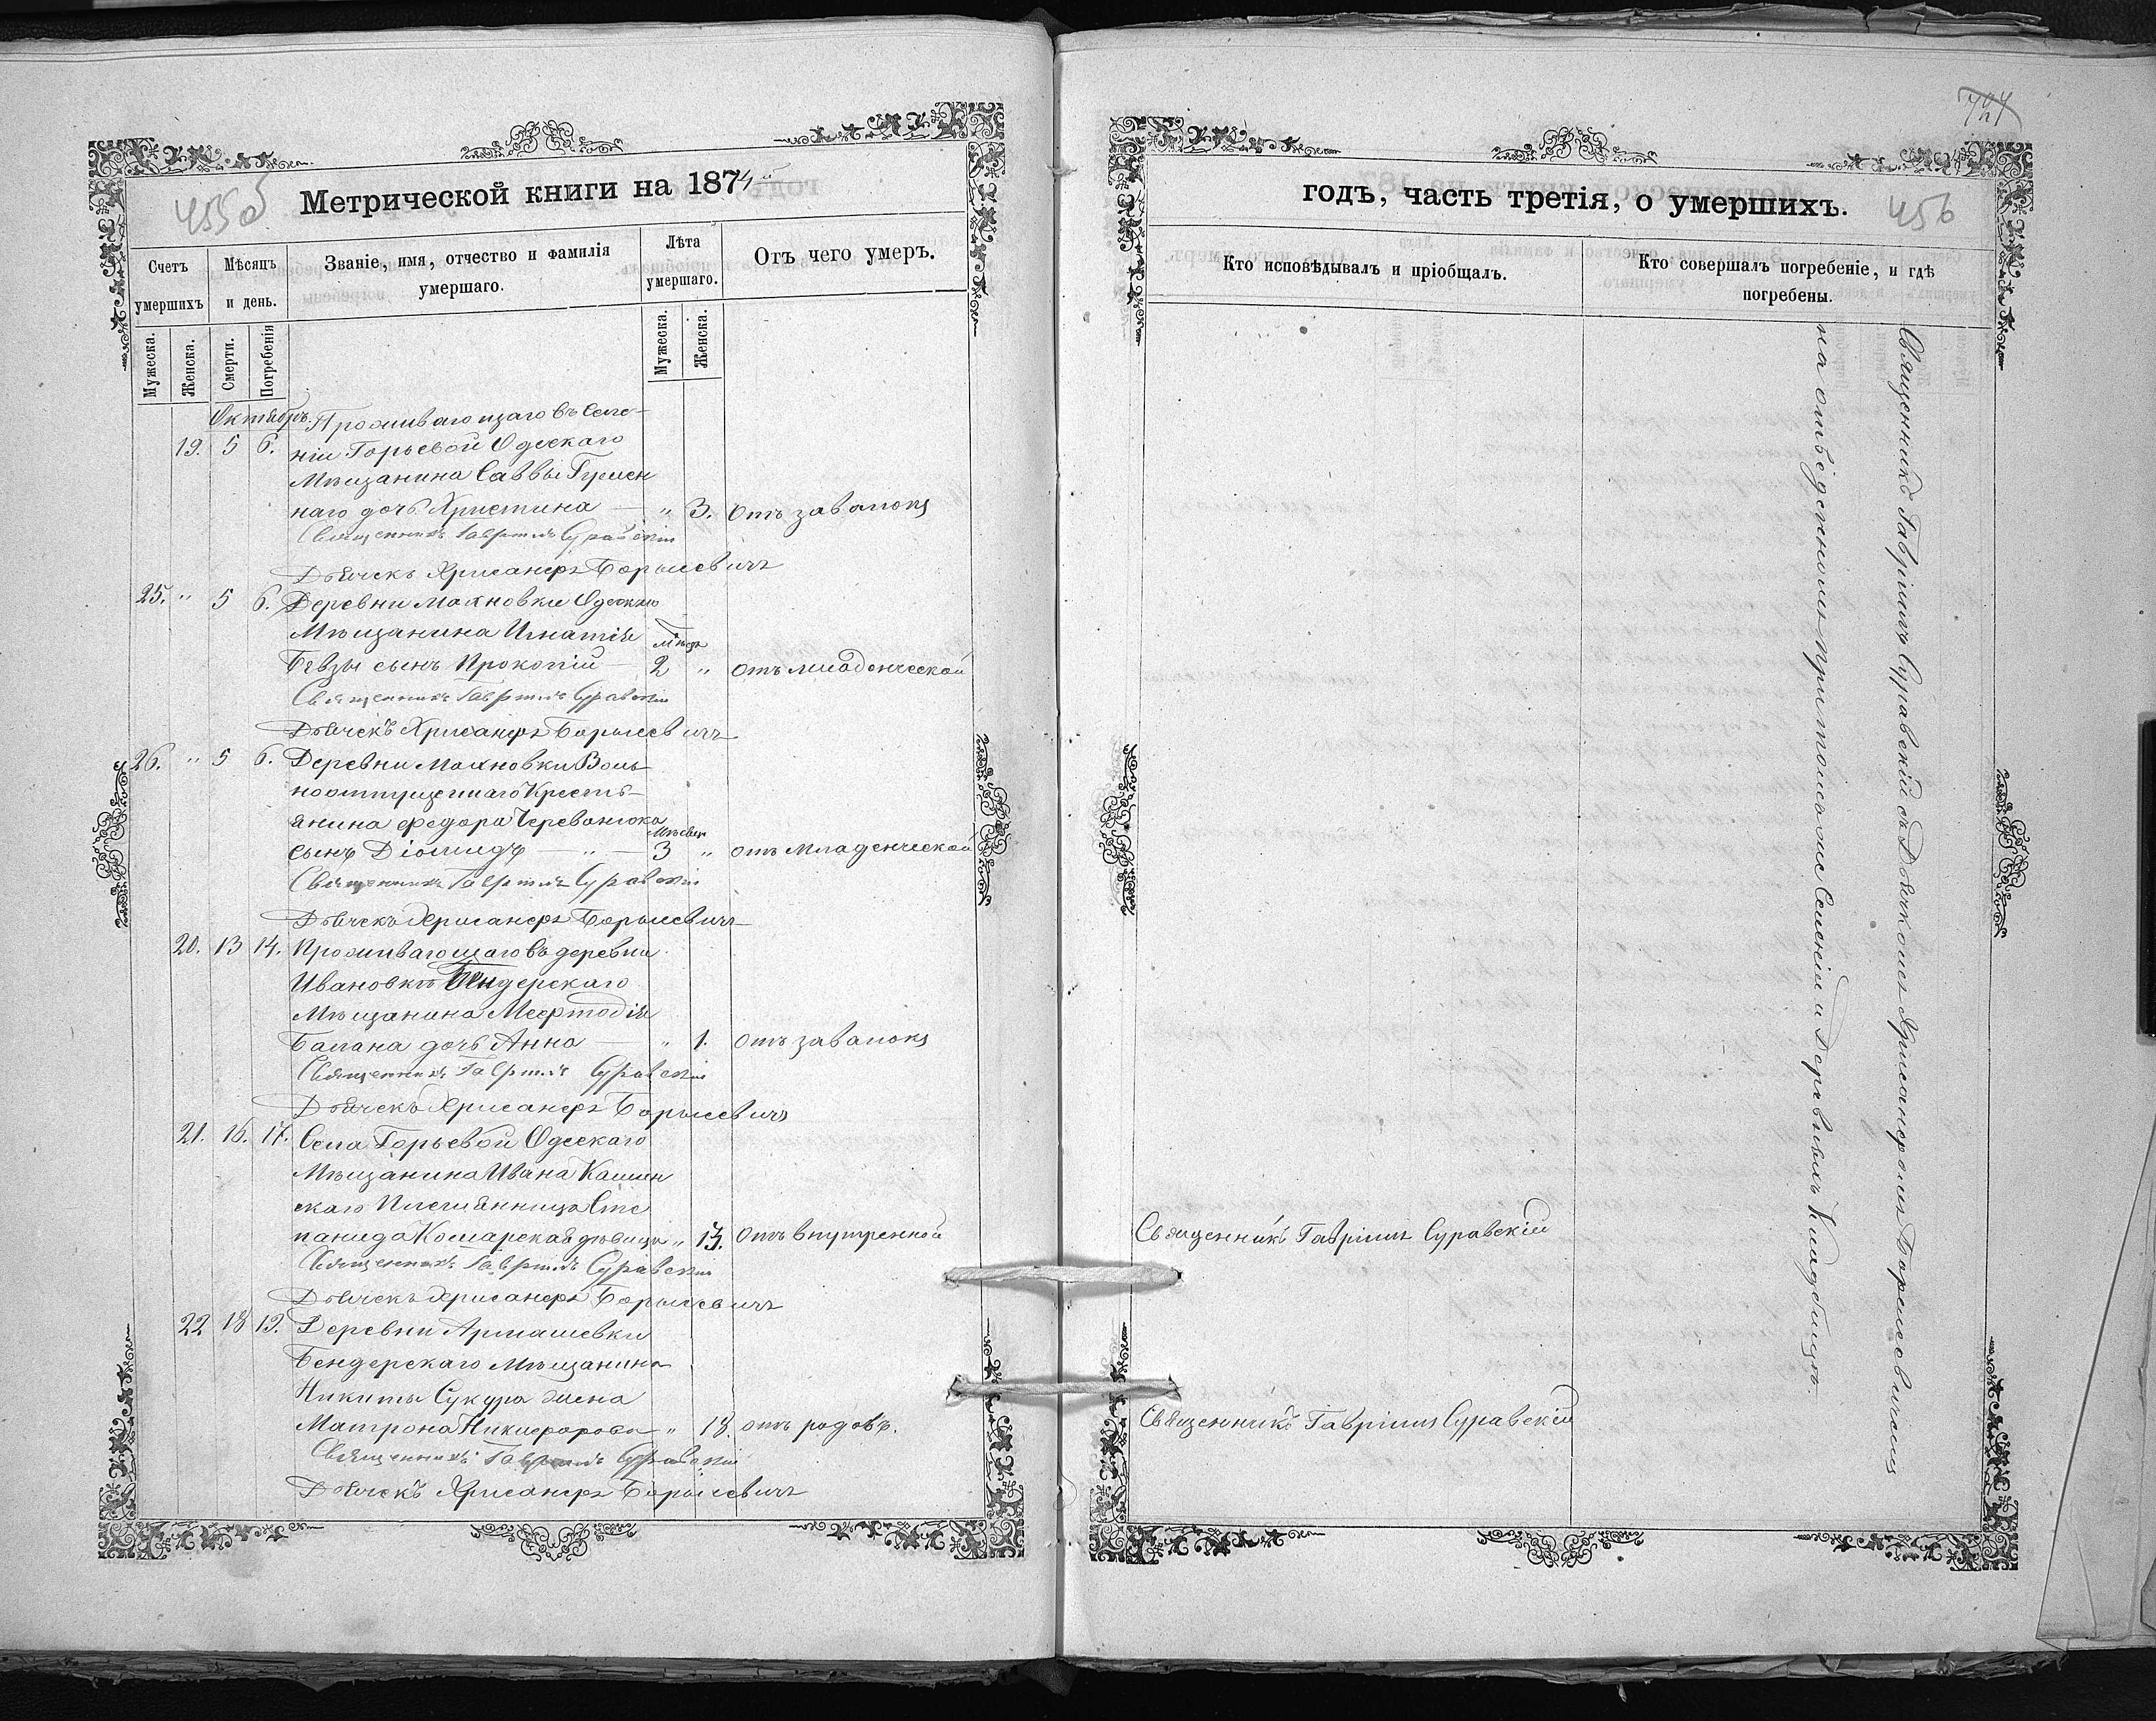 Метрической книги на 1874й
455об
Счетъ умершихъ
Мѣсяцъ и день.
Званіе, имя, отчество и фамилія умершаго.
Лѣта умершаго.
Отъ чего умеръ.
Мужеска.
Женска.
Смерти.
Погребенія
Мужеска.
Женска.
Октябрь. Проживающаго въ Селе-
19. 5 6. ніи Горьевой Одескаго
Мѣщанина Саввы Гумен
наго дочь Христина — " 3. Отъ завалокъ
Священникъ Гавріилъ Суравскій
Дьячекъ Хрисанфъ Борысевичъ
25. " 5 6. Деревни Махновки Одескаго
Мѣщанина Игнатія мѣсяц
Бевзы сынъ Прокопій — 2 " отъ младенческой
Священникъ Гавріилъ Суравскій
Дьячекъ Хрисанфъ Борысевичъ
26. " 5 6. Деревни Махновки Воль-
ноотпущеннаго Кресть-
янина Федора Череванюка
сынъ Діомидъ — " — 3 " отъ Младенческой
Священникъ Гавріилъ Суравскій
Дьячекъ Хрисанфъ Борысевичъ
20. 13 14. Проживающаго въ деревни
Ивановкѣ Бендерскаго
Мѣщанина Мефтодія
Балана дочь Анна — " 1. Отъ завалокъ
Священникъ Гавріилъ Суравскій
Дьячекъ Хрисанфъ Борысевичъ
21. 16. 17. Села Горьевой Одескаго
Мѣщанина Ивана
скаго Племянница Сте
панида Комарская дѣвица " 13. Отъ внутренной
Священникъ Гавріилъ Суравскій
Дьячекъ Хрисанфъ Борысевичъ
22 18 19. Деревни Армашевки
Бендерскаго Мѣщанина
Никиты Сукура жена
Матрона Никифорова " 18. отъ родовъ.
Священникъ Гавріилъ Суравскій
Дьячекъ Хрисанфъ Борысевичъ
годъ, часть третія, о умершихъ.
456
Кто исповѣдывалъ и пріобщалъ.
Кто совершалъ погребеніе, и гдѣ погребены.
Священникъ Гавріилъ Суравскій
Священникъ Гавріилъ Суравскій
Священникъ Гавріилъ Суравскій съ Дьячкомъ Хрисанфомъ Борысевичемъ
на отведенномъ при томъ же Селеніи и Деревняхъ Кладбищѣ.